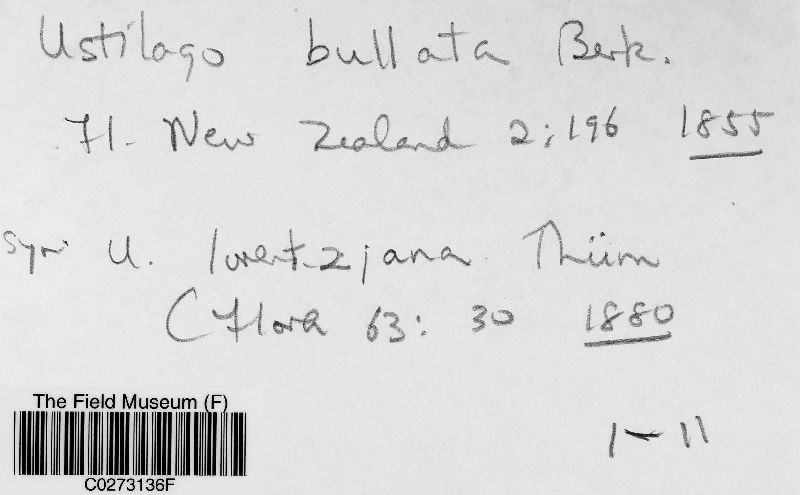 Ustilago bullata Berk.
Fl. New Zealand 2:196 1855
Syn. U. lorentziana Thüm
(Flora 63: 30 1880
1-11
The Field Museum (F)
C0273136F